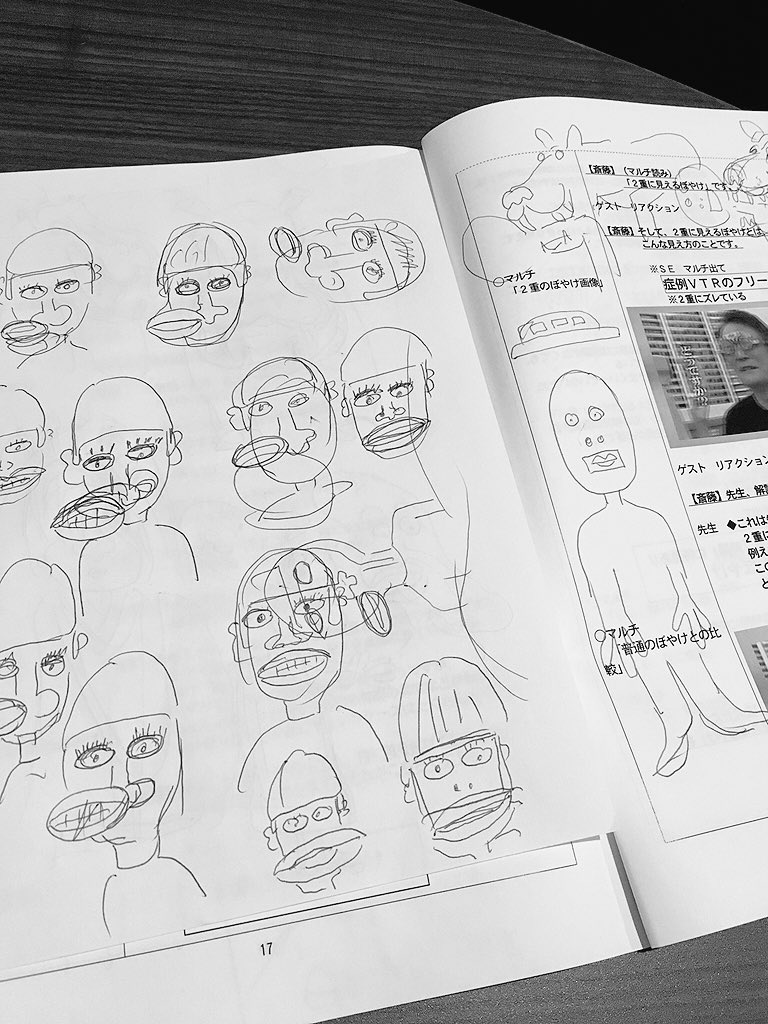 【斎藤】（マルチ読み）
「２重に見えるぼやけ」です。
ゲスト リアクション
【斎藤】そして、２重に見えるぼやけとは、
こんな見え方のことです。
○マルチ
「２重のぼやけ画像」
※ＳＥ マルチ出て
症例ＶＴＲのフリー
※２重にズレている
ゲスト リアクション
【斎藤】先生、解説
先生 ◆これは
２重に
例え
この
と
○マルチ
「普通のぼやけとの比
較」
17